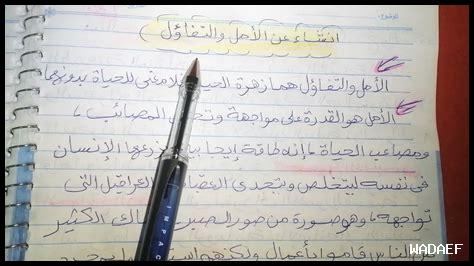 انشاء عن الأمل والتفاؤل
الأمل والتفاؤل هما زهرة الحياة فلا معنى للحياة بدونهما
الأمل هو القدرة على مواجهة وتحمل المصائب،
ومصاعب الحياة، إنه طاقة إيجابية يزرعها الإنسان
في نفسه ليتخلص ويتحدى العقبات والعراقيل التي
تواجهه، وهو صورة من صور الصبر، هناك الكثير
من الناس قاموا بأعمال ولكنهم
WADAEF
IMPACT